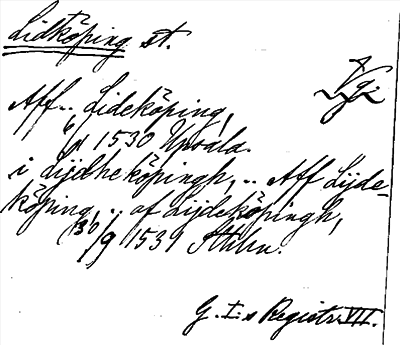 Lidköping st.
Vg.
Aff .. Lideköping,
6/11 1530 Upsala.
i Lijdheköpingh, .. Aff Lijde-
köping, .. af Lijdeköpingh,
30/9 1539 Sthlm.
G. I:s Registr. VII.